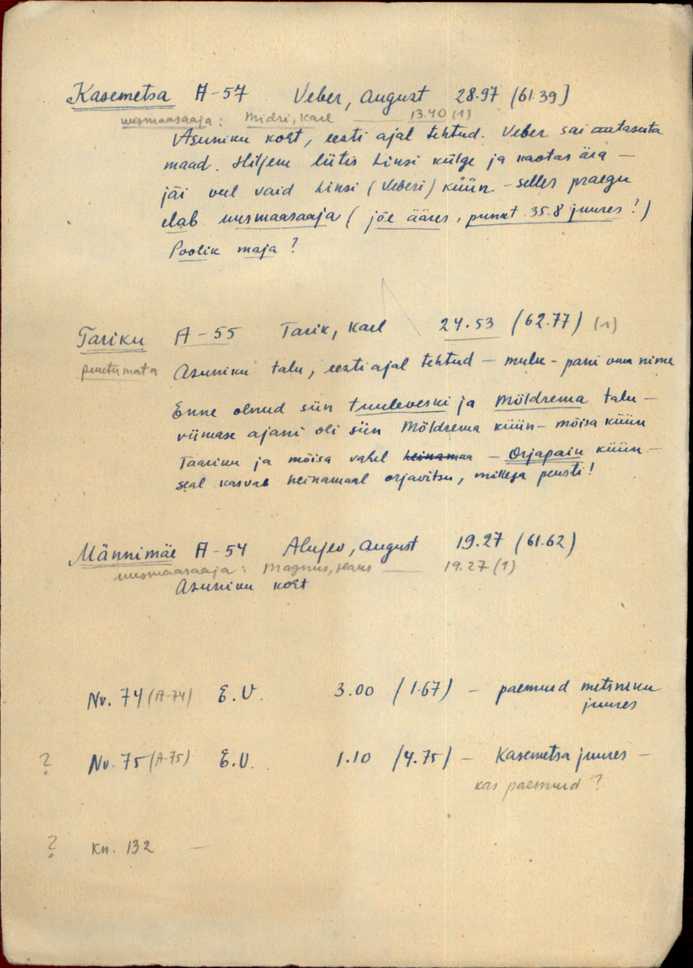 Kasemetsa A-57 Veber, August 28.97 (61.39)
uusmaasaaja: Midri, Karl 13.40 (1)
Asuniku koht, eesti ajal tehtud. Veber sai autasuta
maad. Hiljem liitis Linsi külge ja kaotas ära —
jäi veel vaid Linsi (Veberi) küün - selles praegu
elab uusmaasaaja (jõe ääres, punkt 35.8 juures!)
Poolik maja?
Tariku A-55 Tarik, Karl 24.53 (62.77) (1)
puutumata Asuniku talu, eesti ajal tehtud — mulk - pani oma nime
Enne olnud siin tuuleveski ja Möldrema talu —
viimase ajani oli siin Möldrema küün - mõisa küün
Taariku ja mõisa vahel heinamaa — Orjapain küün —
seal kasvab heinamaal orjavitsu, millega peksti!
Männimäe A-54 Alujev, August 19.27 (61.62)
uusmaasaaja: Magnus, 19.27 (1)
Asuniku koht
Nr. 74 (A-74) E.V. 3.00 (1.67) — paemurd metsniku
juures
? Nr. 75 (A-75) E.V. 1.10 (4.75) — Kasemetsa juures —
kas paemurd?
? Kn. 132 —